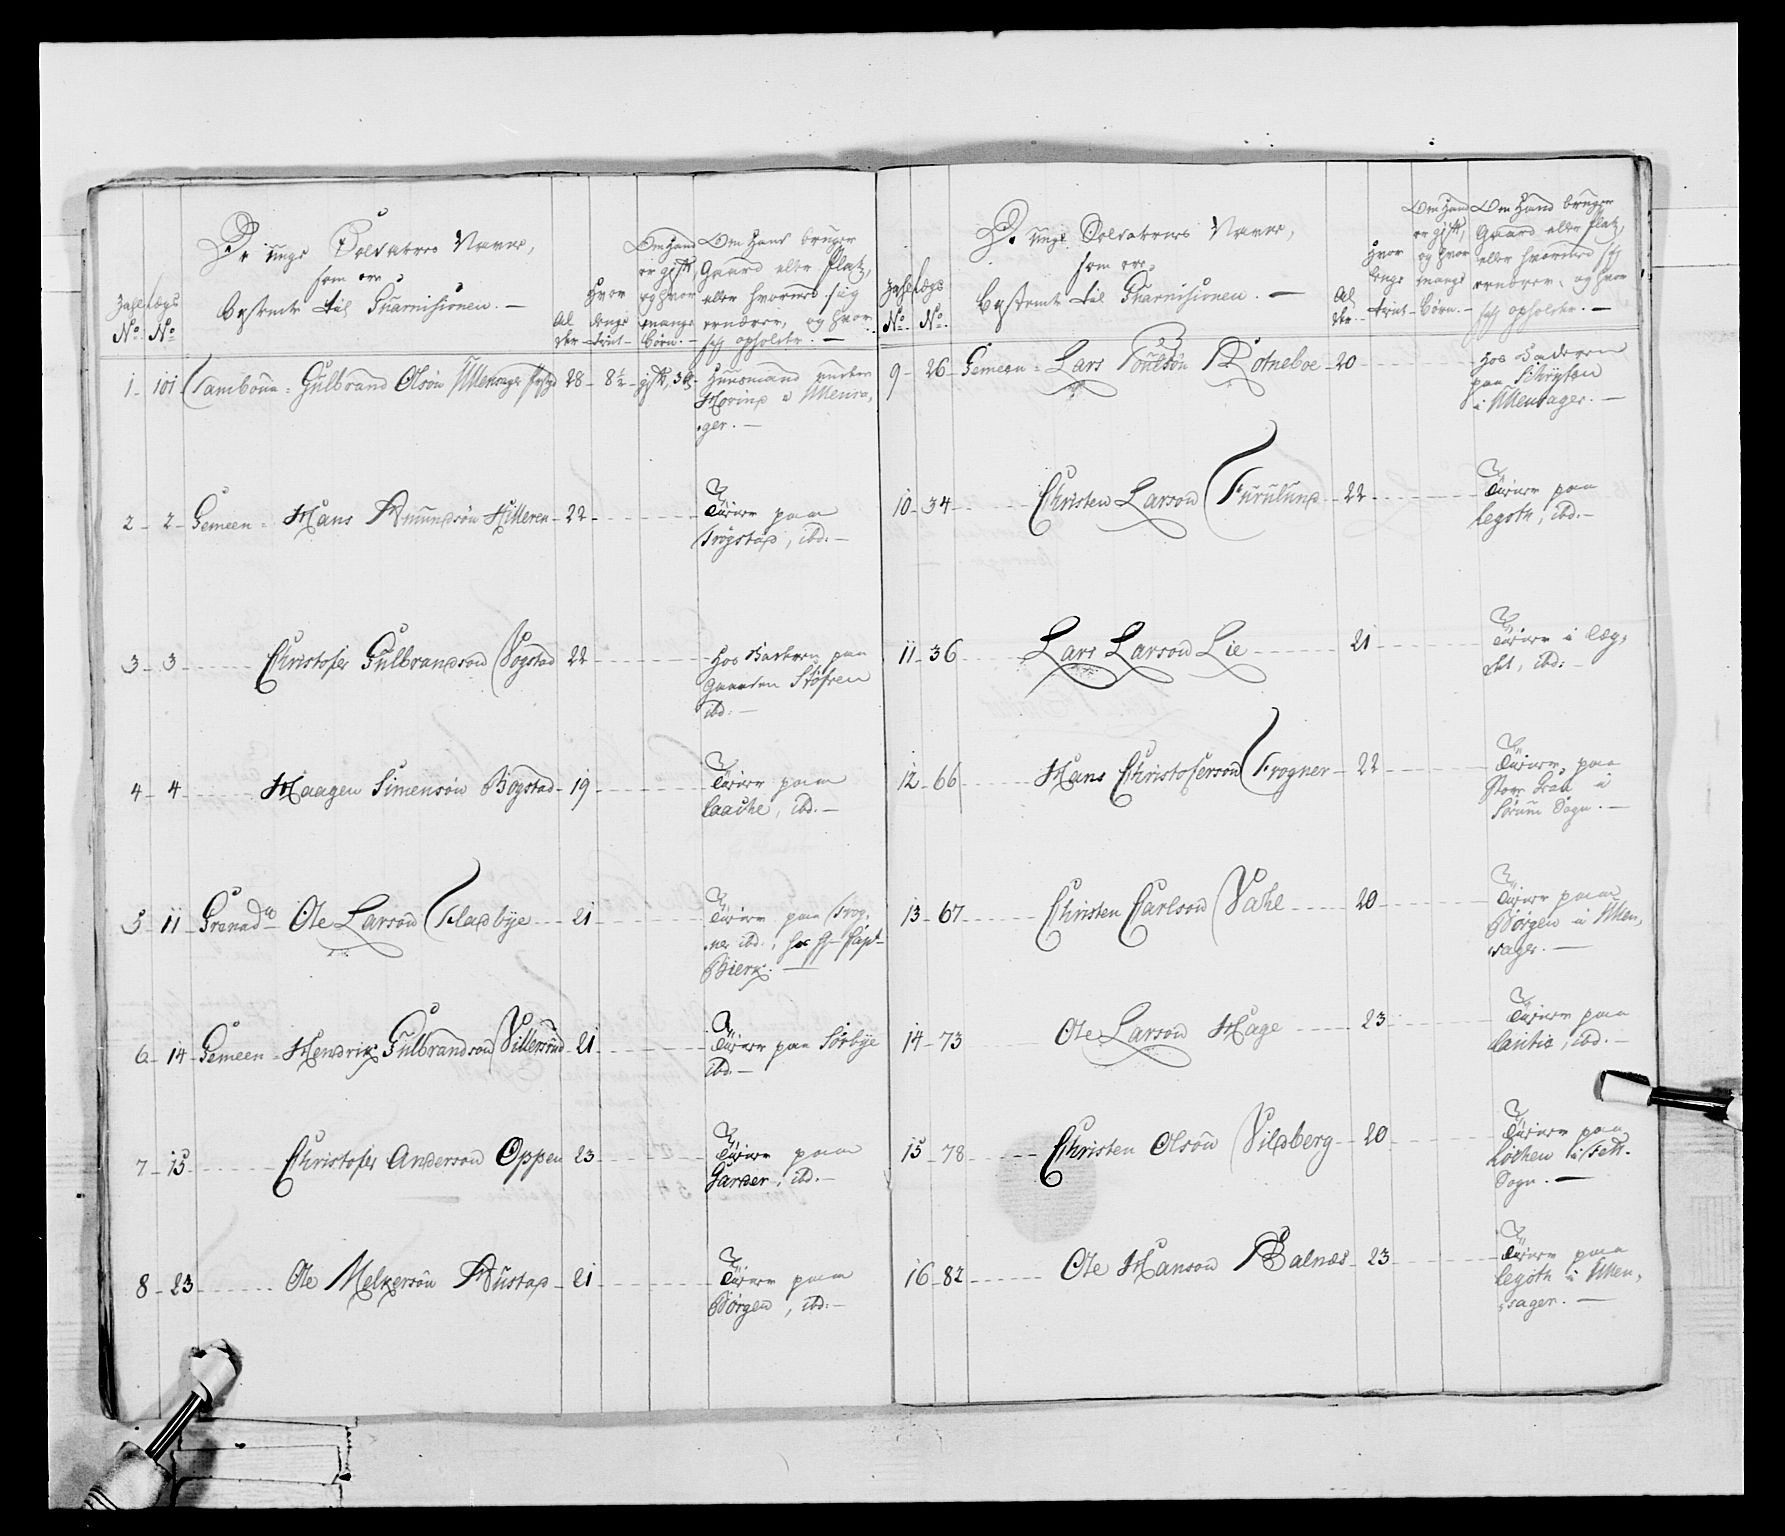 De unge Soldaters Navne,
som ere
bestemte til Guarnisionen. —
Zahl
No
Lægs
No
Al
der
Hvor
lenge
tient
Om Hand
er gift,
og hvor
mange
Børn. —
Om Hand bruger
Gaard eller Platz,
eller hvormed sig
ernærer, og hvor
sig opholder. —
1 - 101 Tambour - Gulbrand Olsøn Ullensager 28 - 8½ - gift, 3 B. Huusmand under
Hovind i Ullensa,
ger. —
2 - 2 - Gemeen - Hans Amundsøn Hilleren - 22 - Tiener paa
Trøgstad, ibd. —
3 - 3 - Christofer Gulbrandsøn Vogstad 22 - Hos Faderen paa
Gaarden
ibd. —
4 - 4 - Haagen Simensøn Bogstad - 19 - Tiener paa
Laache, ibd. —
5 - 11 - Grenad. Ole Larsøn Fladbye - 21 - Tiener paa Frog,
ner ibd., hos H. Capt.
Bierk. —
6 - 14 - Gemeen - Hendrik Gulbrandsøn Villersrud - 21 - Tiener paa Sørbye
ibd. —
7 - 15 - Christofer Andersøn Oppen 23 - Tiener paa
Garder, ibd. —
8 - 23 - Ole Melkersøn Austad - 21 - Tiener paa
Børgen, ibd. —
De unge Soldaters Navne,
som ere
bestemte til Guarnisionen. —
Zahl
No
Lægs
No
Al
der
Hvor
lenge
tient
Om Hand
er gift,
og hvor
mange
Børn. —
Om Hand bruger
Gaard eller Platz,
eller hvormed sig
ernærer, og hvor
sig opholder. —
9 - 26 Gemeen - Lars Poulsøn Rotneboe - 20 - Hos Faderen
paa
i Ullensager. —
10 - 34 - Christen Larsøn Furulund - 22 - Tiener paa
Legoth, ibd. —
11 - 36 Lars Larsøn Lie - 21 - Tiener i Læg,
det, ibd. —
12 - 66 - Hans Christofersøn Frogner - 22 - Tiener paa
Store i
Sørum Sogn. —
13 - 67 - Christen Carlsøn Vahe - 20 - Tiener paa
Børgen i Ullen,
sager. —
14 - 73 Ole Larsøn Hage - 23 - Tiener paa
ibd. —
15 - 78 - Christen Olsøn Vilberg - 20 - Tiener paa
Løchen i Fett
Sogn. —
16 - 82 - Ole Hansøn Balnæs - 23 - Tiener paa
Legoth i Ullen,
sager. —